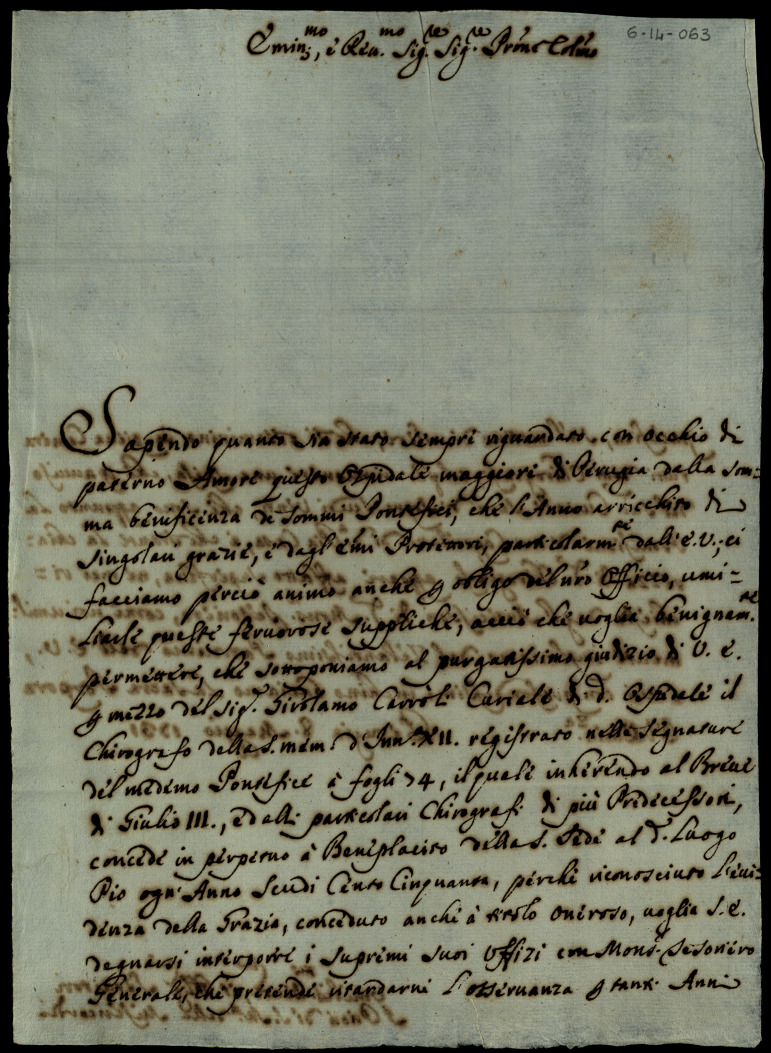 6-14-063
Emin.mo, e Reu.mo Sig.re Sig.re Prone Colmo
Sapendo quanto sia stato sempre riguardato con occhio di
paterno Amore questo Ospedale maggiore di Perugia dalla som=
ma beneficenza de Sommi Pontefici, che l'Anno arricchito di
singolari grazie, e dagl'emi Protettori, particolarm.te dall'E.V., ci
facciamo perciò animo anche p obligo del nro Officio, umi=
liarle queste feruorose suppliche, acciò che uoglia benignam.te
permettere, che sottoponiamo al purgatissimo giudizio di V. E.
p mezzo del Sig.r Girolamo Carroli Curiale di d. Ospedale il
Chirografo della S. mem. d'Inn. XII. registrato nelle Segnature
del medemo Pontefice à fogli 74, il quale inherendo al Breue
di Giulio III., e dalli particolari Chirografi di più Predecessori,
concede in perpetuo à Beneplacito della S. Sede al d.o Luogo
Pio ogn'Anno Scudi Cento Cinquanta, perche riconosciuto l'eui=
denza della Grazia, conceduto anche à titolo oneroso, uoglia S. E.
degnarsi interporre i supremi suoi Uffizi con Mons.r Tesoriero
Generale, che pretende ritardarne l'osseruanza p tanti Anni